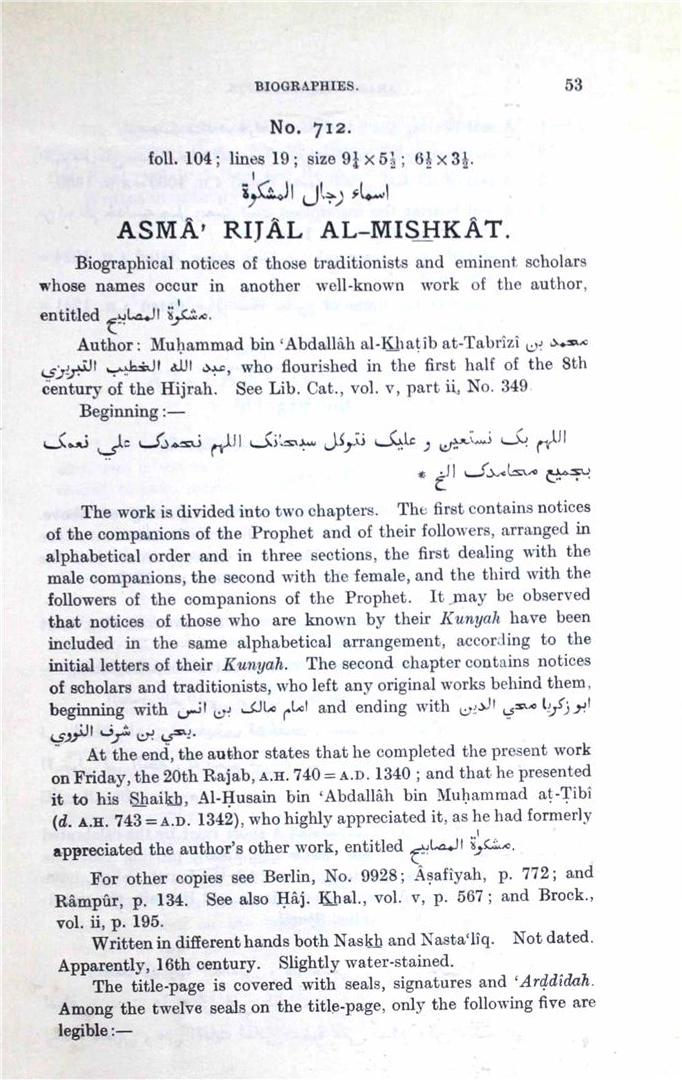 BIOGRAPHIES. 53
No. 712.
foll. 104; lines 19; size 9¼ × 5½; 6½ × 3½.
اسماء رجال المشكوٰة
ASMÂ' RIJÂL AL-MISHKÂT.
Biographical notices of those traditionists and eminent scholars
whose names occur in another well-known work of the author,
entitled مشكوٰة المصابيح.
Author: Muḥammad bin ‘Abdallâh al-Khaṭib at-Tabrîzi محمد بن
عبد الله الخطيب التبريزي, who flourished in the first half of the 8th
century of the Hijrah. See Lib. Cat., vol. v, part ii, No. 349
Beginning:—
اللهم بک نستعين و عليک نتوکل سبحانک اللهم نحمدک علي نعمک
بجميع محامدک الخ *
The work is divided into two chapters. The first contains notices
of the companions of the Prophet and of their followers, arranged in
alphabetical order and in three sections, the first dealing with the
male companions, the second with the female, and the third with the
followers of the companions of the Prophet. It may be observed
that notices of those who are known by their Kunyah have been
included in the same alphabetical arrangement, according to the
initial letters of their Kunyah. The second chapter contains notices
of scholars and traditionists, who left any original works behind them,
beginning with امام مالک بن انس and ending with ابو زکريا محي الدين
يحي بن شرف النووي.
At the end, the author states that he completed the present work
on Friday, the 20th Rajab, A.H. 740 = A.D. 1340; and that he presented
it to his Shaikh, Al-Ḥusain bin ‘Abdallâh bin Muḥammad aṭ-Ṭîbî
(d. A.H. 743 = A.D. 1342), who highly appreciated it, as he had formerly
appreciated the author's other work, entitled مشكوٰة المصابيح.
For other copies see Berlin, No. 9928; Âṣafîyah, p. 772; and
Râmpûr, p. 134. See also Ḥâj. Khal., vol. v, p. 567; and Brock.,
vol. ii, p. 195.
Written in different hands both Naskh and Nasta‘lîq. Not dated.
Apparently, 16th century. Slightly water-stained.
The title-page is covered with seals, signatures and ‘Arḍdîdah.
Among the twelve seals on the title-page, only the following five are
legible:—